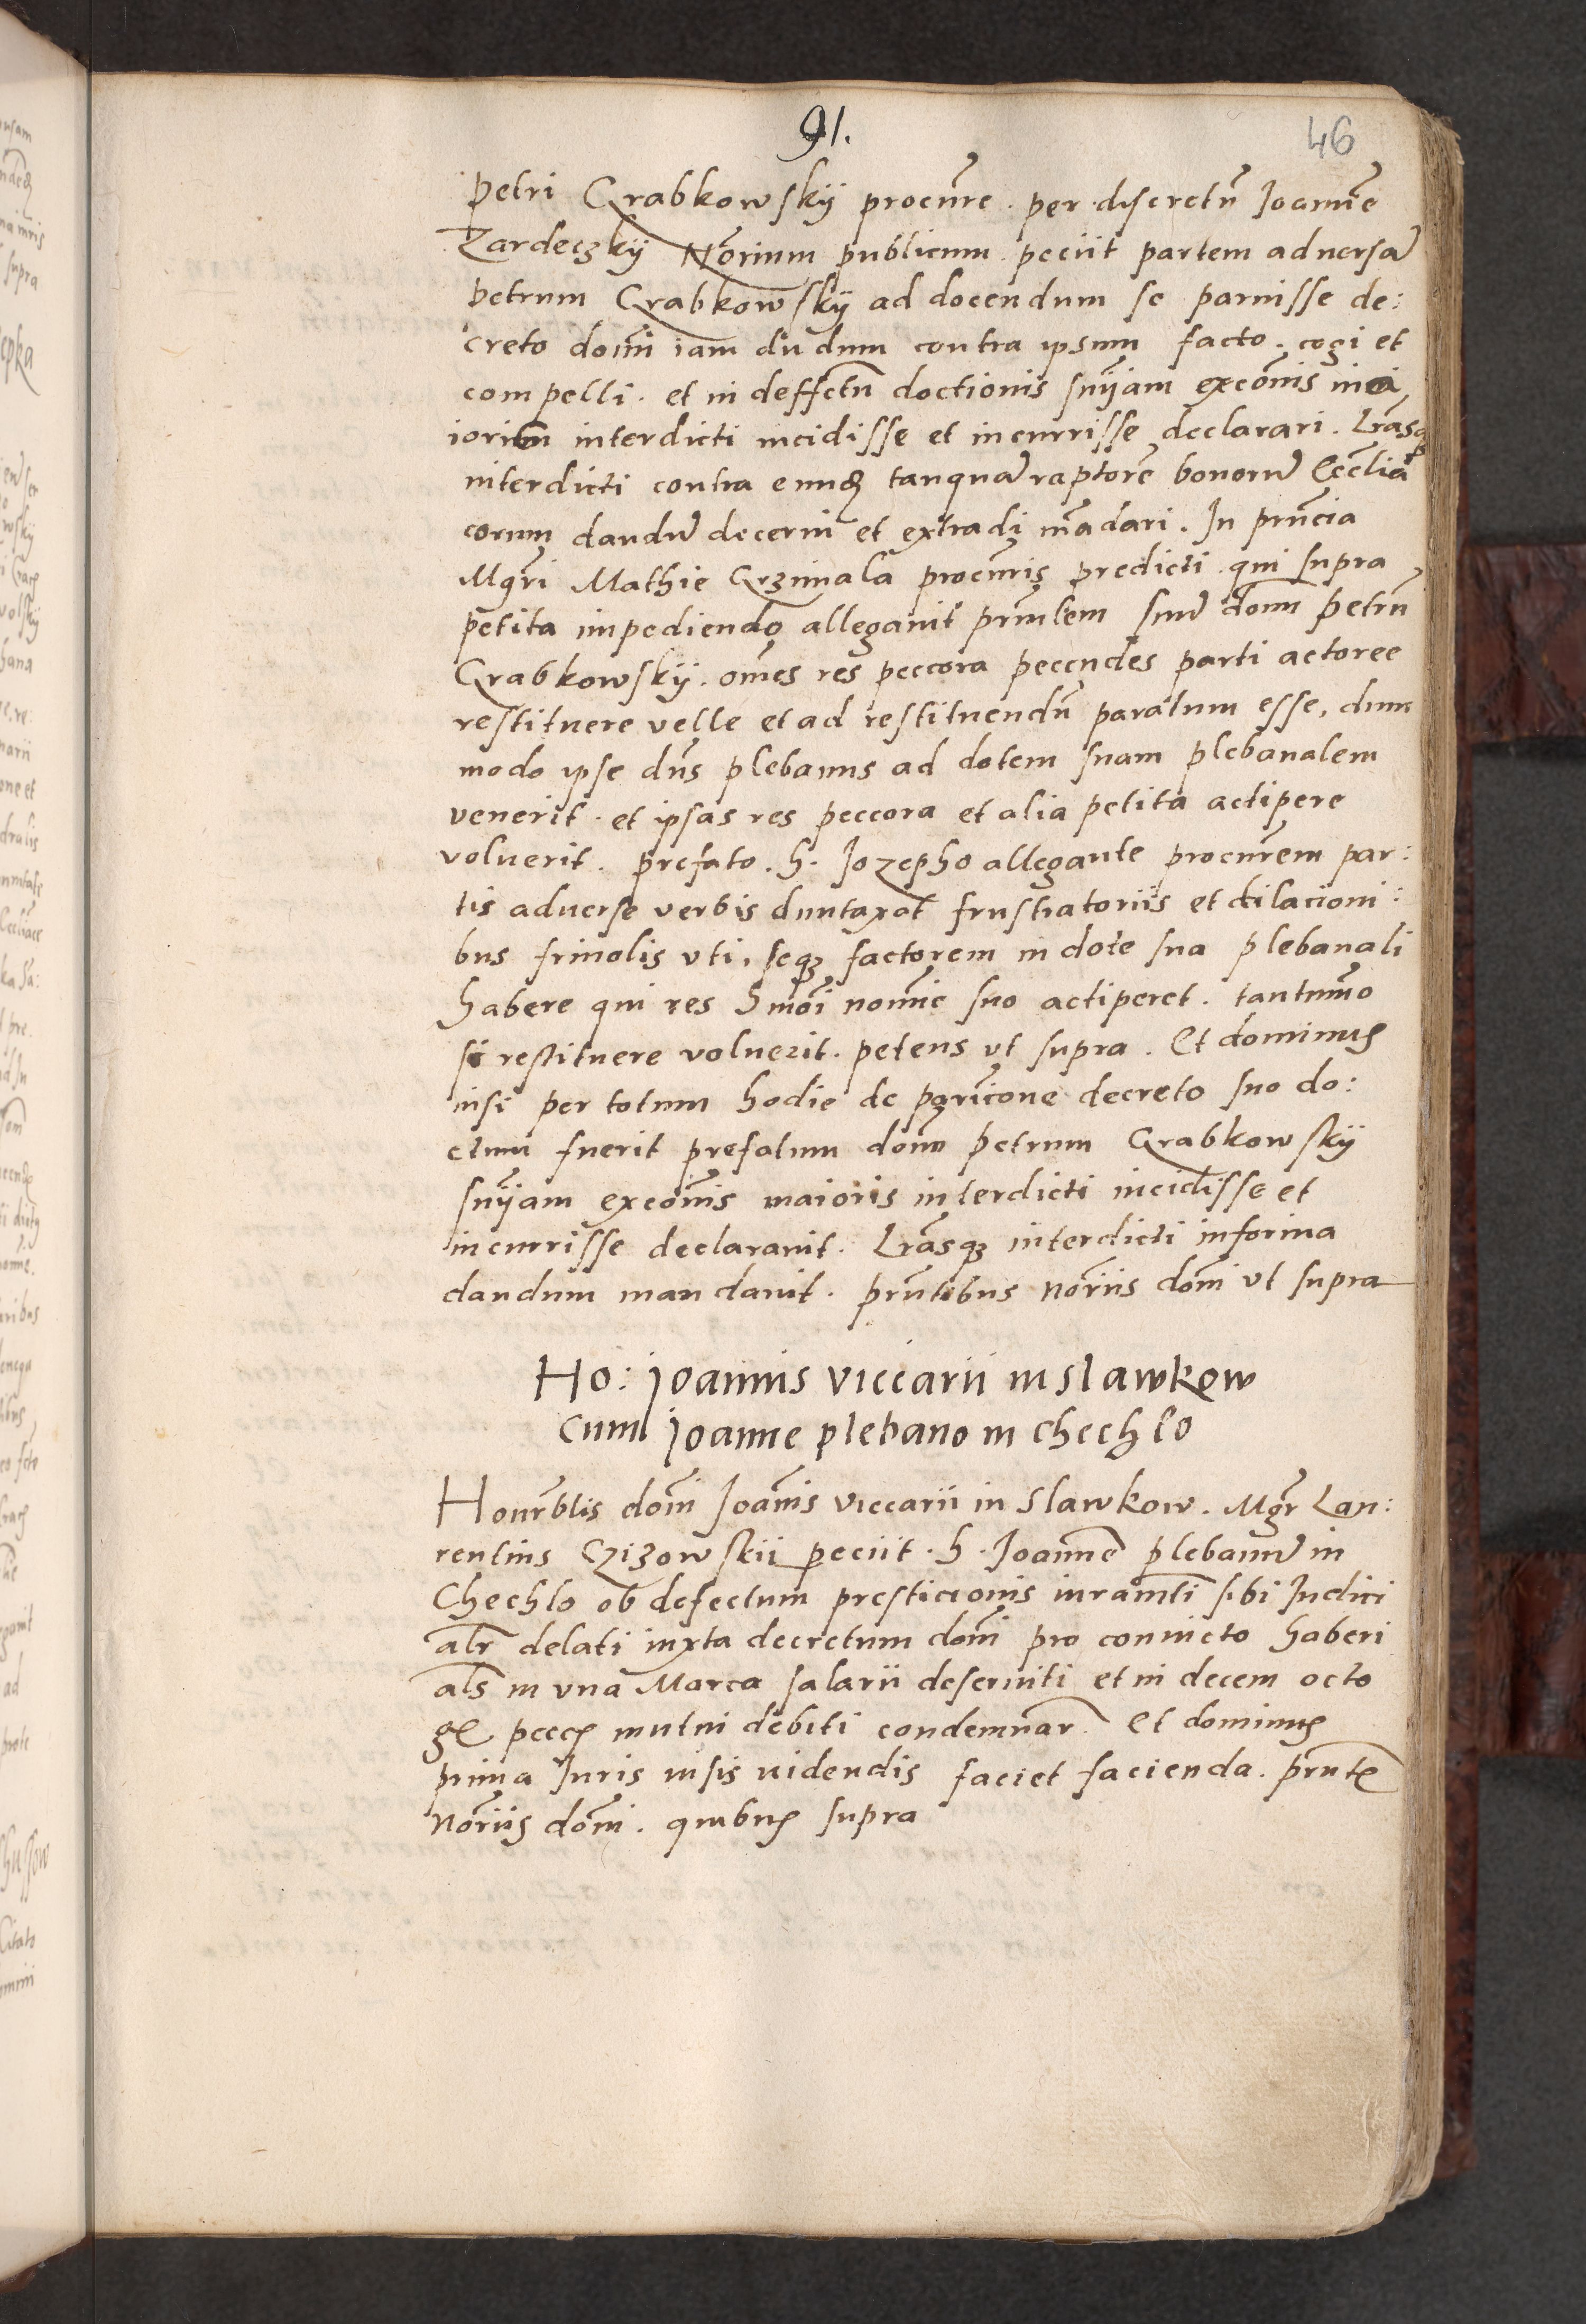 91.
46
Petri Grabkowskÿ procurē. per discretū Joannē
Zardeczkÿ Nōrium publicum peciit partem aduersā
petrum Grabkowskÿ ad docendum se paruisse de:
creto domī iam dudum contra ipsum facto. cogi et
compelli. et in deffctū doctionis snÿam excōīs ma
ioris interdicti incidisse et incurrisse declarari. Lrasq
interdicti contra eundē tanquā raptorē bonorū Eccliā
corum dandū decerni et extradi mādari. In prncia
Mgri Mathie Grzimala procuris predicti qui supra
petita impediendo allegauit prnlem suū dom̄ petrū
Grabkowskÿ. omēs res peccora pecudes parti actoree
restituere velle et ad restituendū paratum esse, dum
modo ipse dns plebanus ad dotem suam plebanalem
venerit. et ipsas res peccora et alia petita accipere
voluerit. prefato. h. Jozepho allegante procurem par:
tis aduerse verbis duntaxat frustratoriis et dilacioni:
bus friuolis vti, seqz factorem in dote sua plebanali
habere qui res hmōi nomīe suo acciperet. tantummo
si restituere voluerit. petens vt supra. Et dominus
nisi per totum hodie de paricone decreto suo do:
ctum fuerit prefatum dom̄ petrum Grabkowskÿ
snÿam excōīs maioris interdicti incidisse et
incurrisse declarauit. Lrasqz interdicti in forma
dandum mandauit. prntibus noriis domī vt supra
Ho: Joannis viccarii in Slawkow
cum Joanne plebano in Chechlo
Honrblis domī Joanīs viccarii in Slawkow. Mgr Lau:
rentius Czizowskii peciit. h. Joannē plebanū in
Chechlo ob defectum presticionis iuramti sibi Judici
alr delati iuxta decretum domī pro conuicto haberi
als in vna Marca salarii deseruiti et in decem octo
gr pecc mutui debiti condemnar. Et dominus
prima Juris visis videndis faciet facienda. prntē
noriis domī. quibus supra